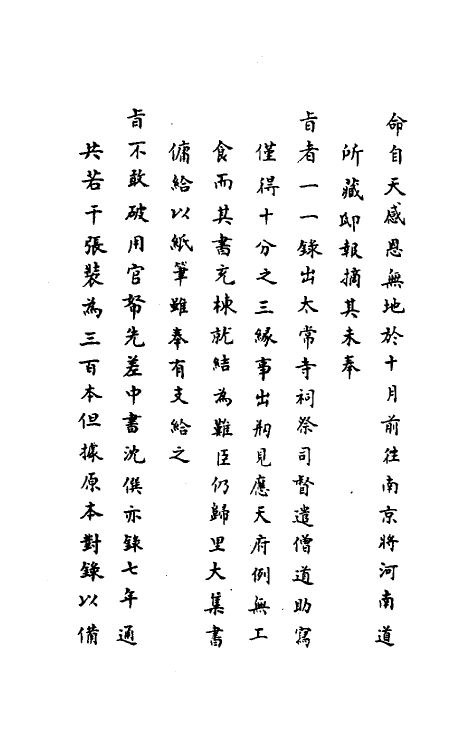 命自天感恩無地於十月前往南京將河南道
所藏邸報摘其未奉
旨者一一錄出太常寺祠祭司督遣僧道助寫
僅得十分之三緣事出剏見應天府例無工
食而其書充棟就結為難臣仍歸里大集書
傭給以紙筆雖奉有支給之
旨不敢破用官帑先差中書沈僎亦錄七年通
共若干張裝為三百本但據原本對錄以備